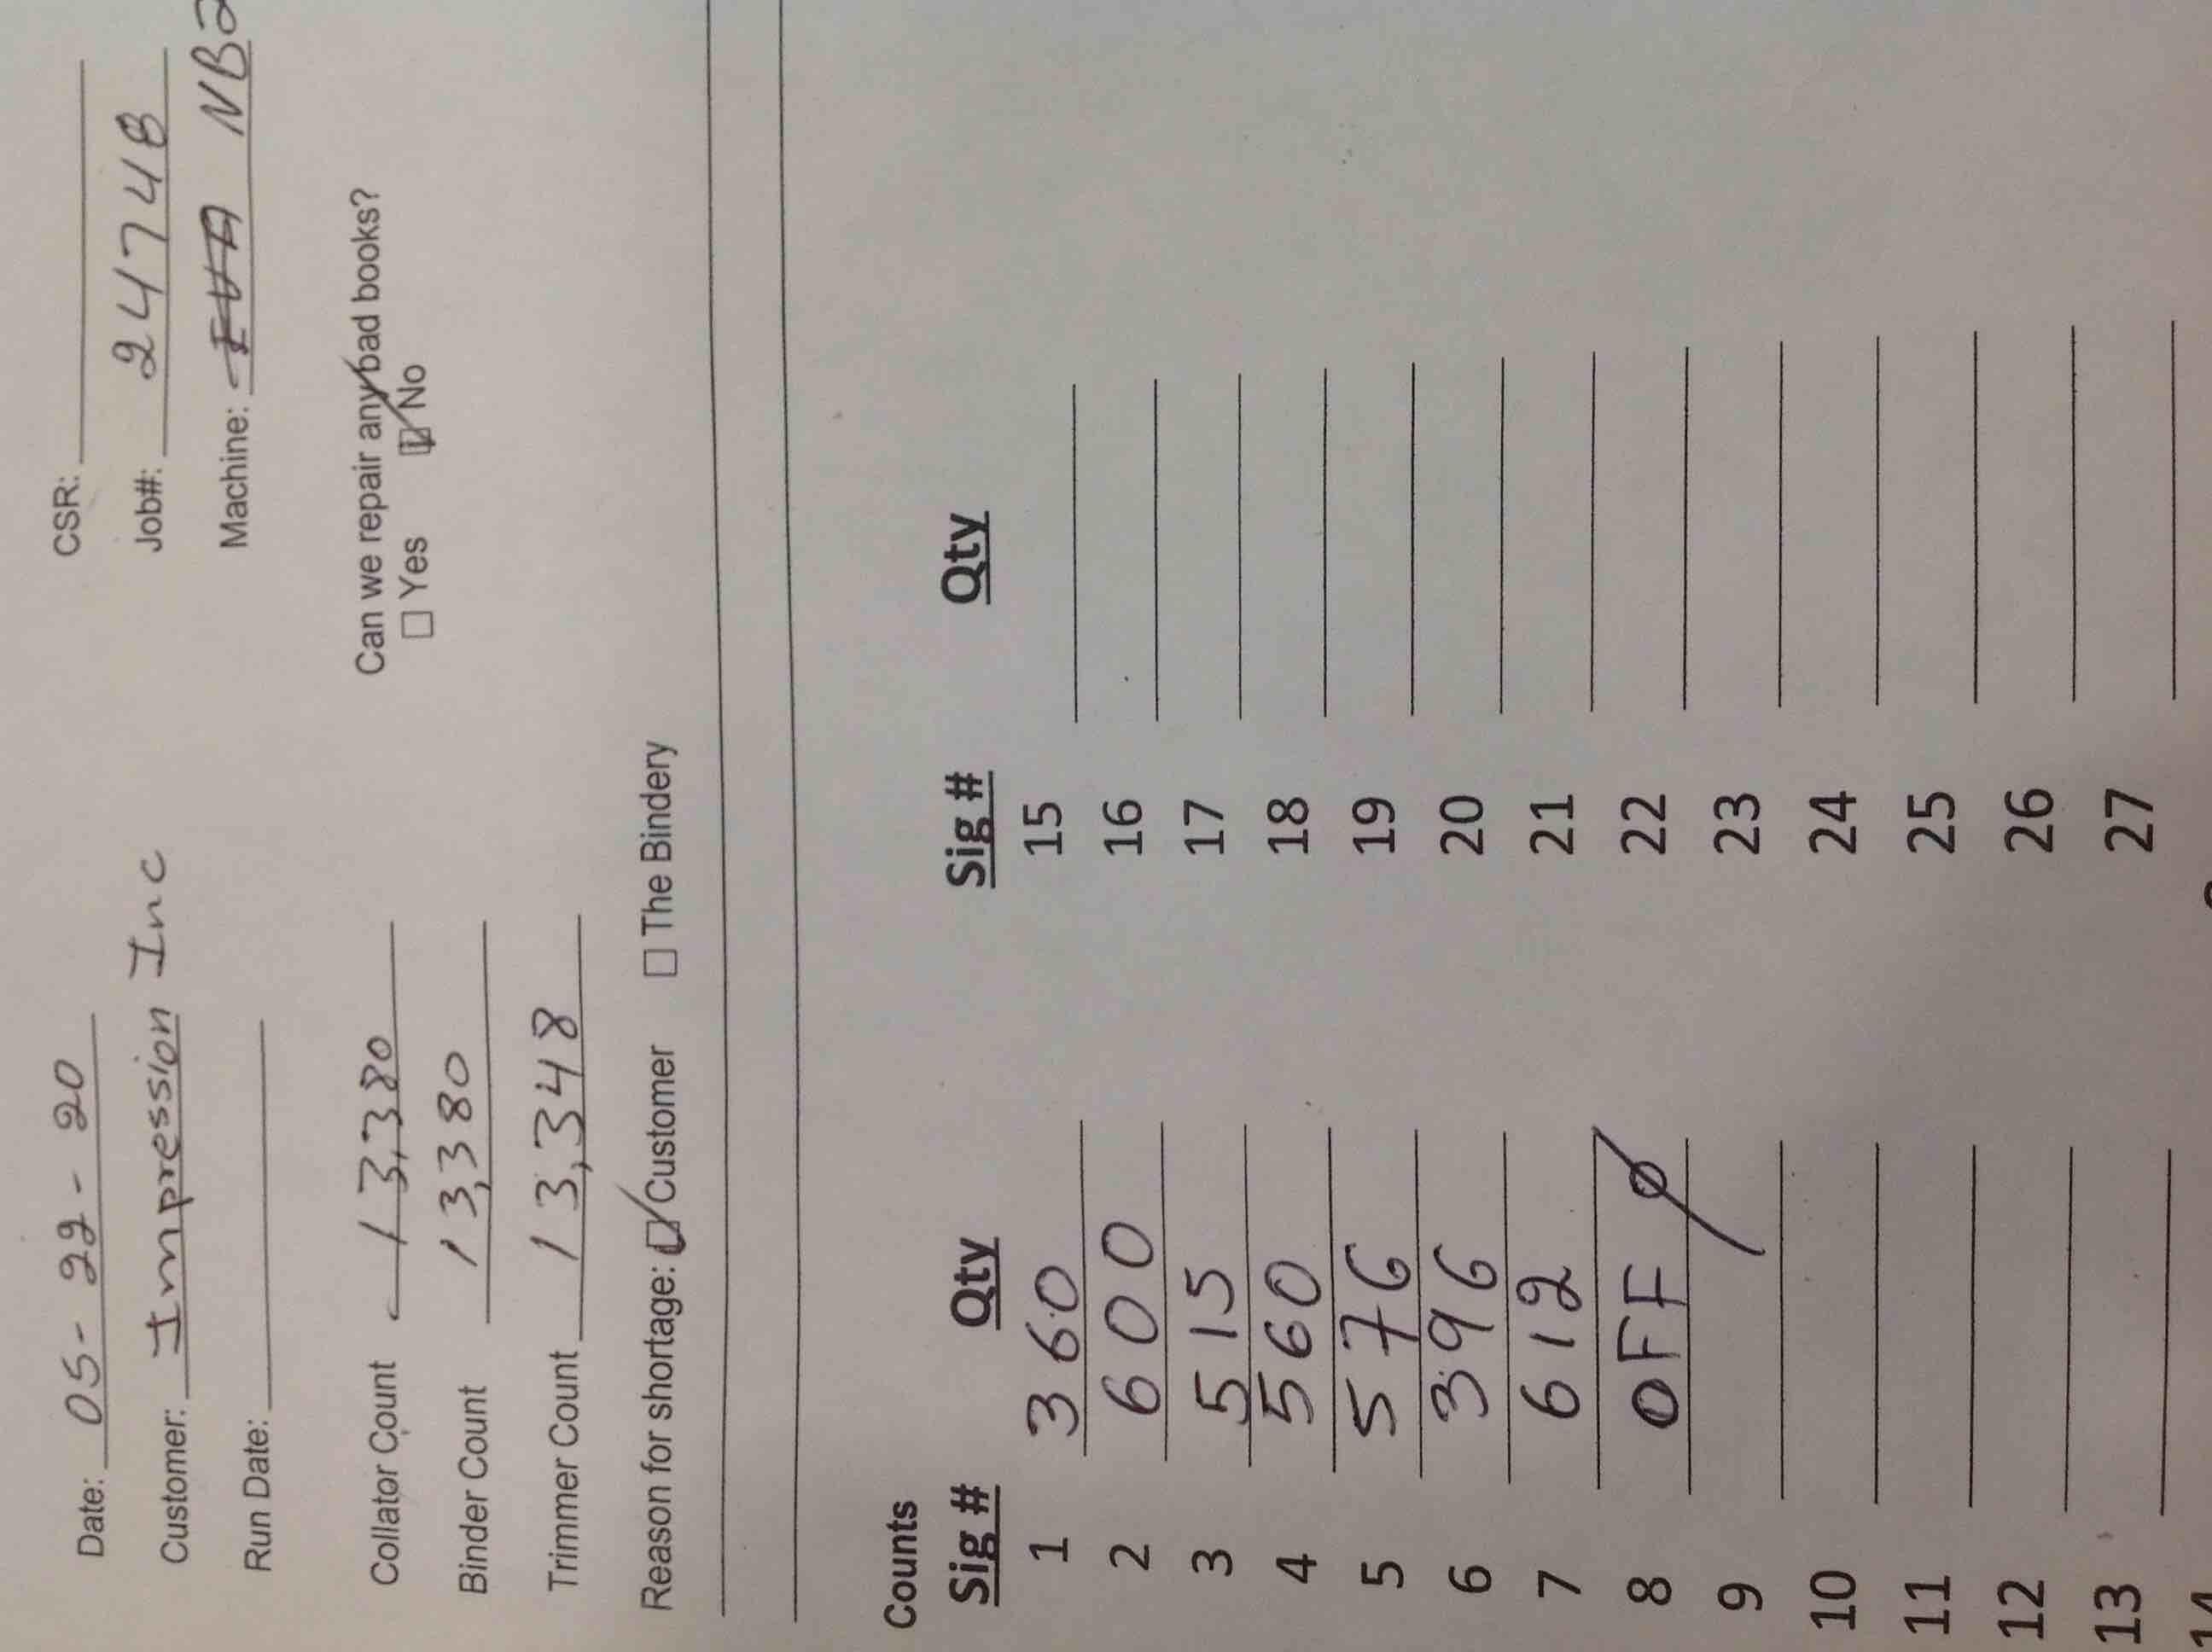 Date: 05-22-20 CSR:
Customer: Impression Inc Job#: 24748
Run Date: Machine: NB2
Collator Count 13,380 Can we repair any bad books?
Binder Count 13,380 ☐ Yes ☑ No
Trimmer Count 13,348
Reason for shortage: ☑ Customer ☐ The Bindery
Counts
Sig # Qty Sig # Qty
1 360 15
2 600 16
3 515 17
4 560 18
5 576 19
6 396 20
7 612 21
8 OFF Ø 22
9 23
10 24
11 25
12 26
13 27
14